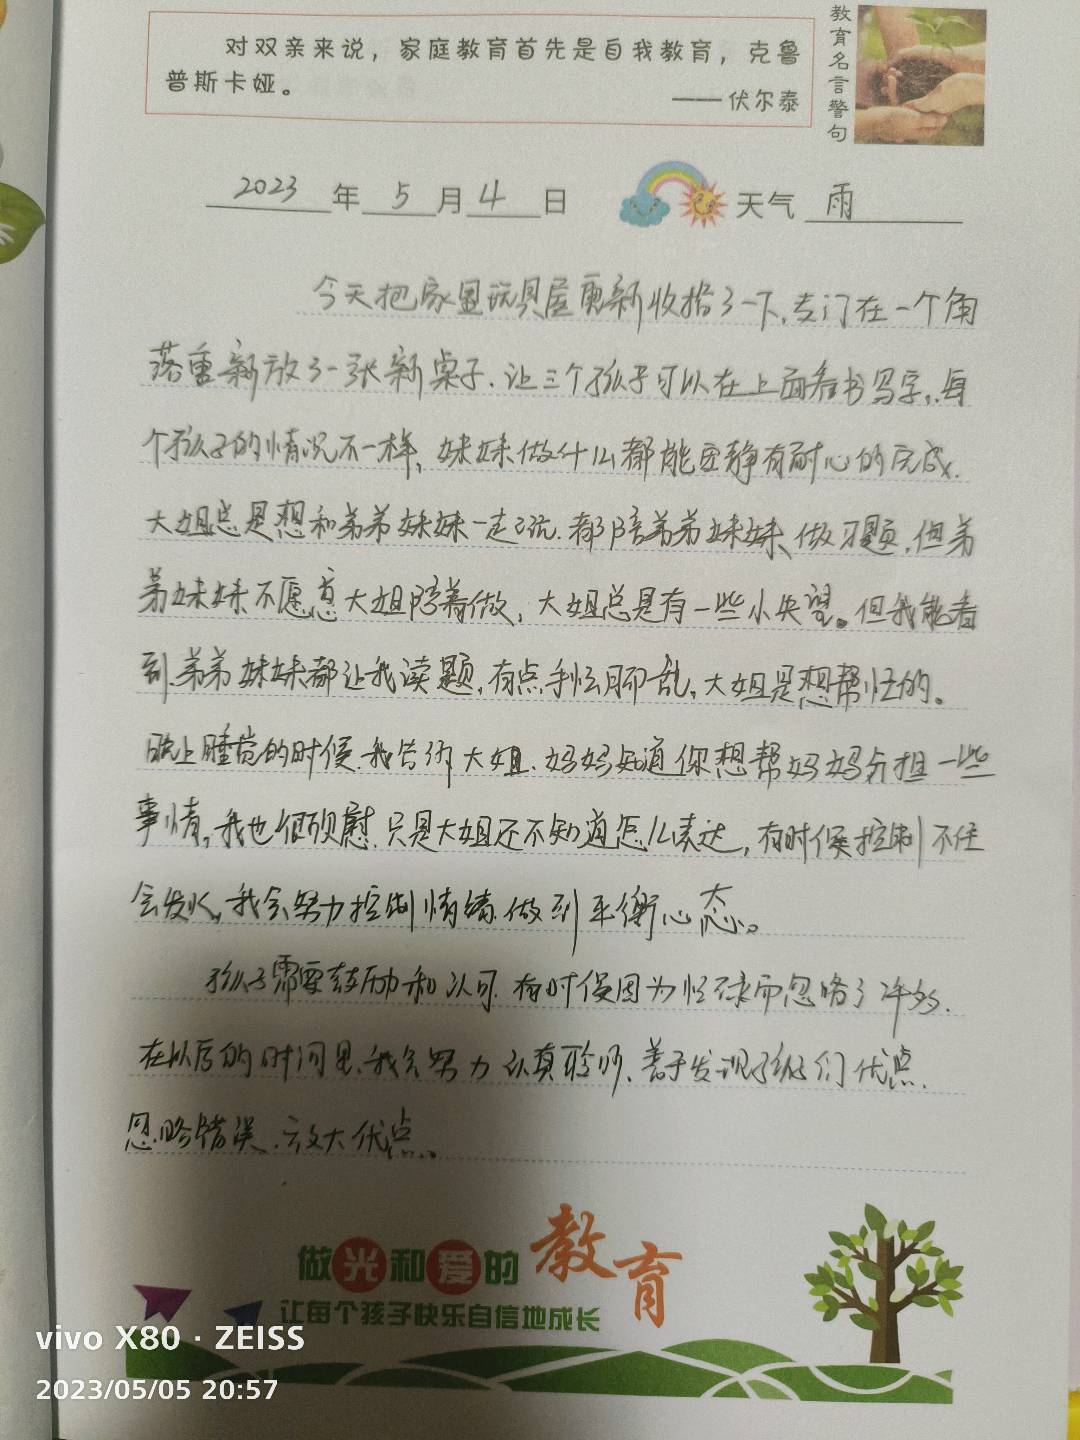 对双亲来说，家庭教育首先是自我教育，克鲁
普斯卡娅。
——伏尔泰
教育名言警句
2023年5月4日 天气 雨
今天把家里玩具屋更新收拾了一下，专门在一个角
落重新放了一张新桌子.让三个孩子可以在上面看书写字,每
个孩子的情况不一样,妹妹做什么都能安静有耐心的完成.
大姐总是想和弟弟妹妹一起玩.都陪弟弟妹妹做习题,但弟
弟妹妹不愿意大姐陪着做,大姐总是有一些小失望。但我能看
到弟弟妹妹都让我读题,有点手忙脚乱,大姐是想帮忙的。
晚上睡觉的时候.我告诉大姐.妈妈知道你想帮妈妈分担一些
事情,我也很欣慰.只是大姐还不知道怎么表达,有时候控制不住
会发火,我会努力控制情绪.做到平衡心态。
孩子需要鼓励和认可.有时候因为忙碌而忽略了许多.
在以后的时间里.我会努力认真聆听、善于发现孩子们优点.
忽略错误.放大优点.
做光和爱的教育
让每个孩子快乐自信地成长
vivo X80 · ZEISS
2023/05/05 20:57